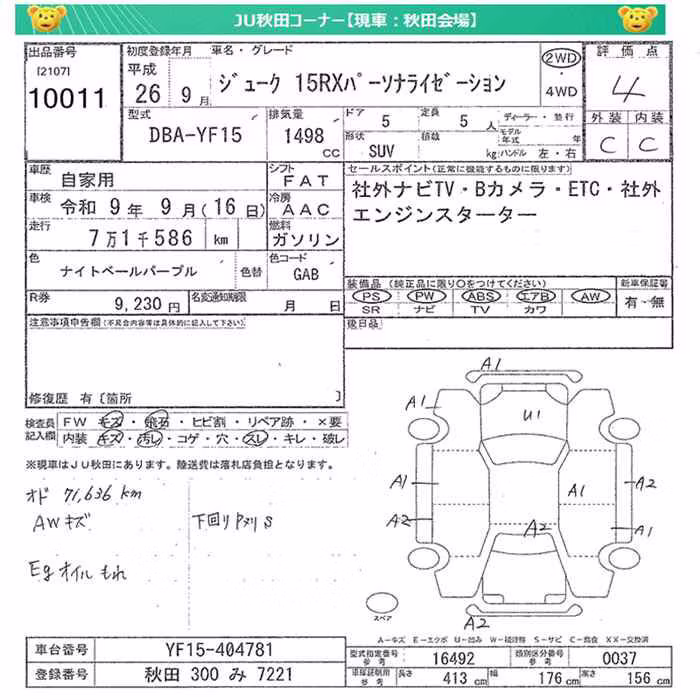 JU秋田コーナー【現車：秋田会場】
出品番号
[2107]
10011
初度登録年月
平成
26 9月
車名・グレード
ジューク 15RXパーソナライゼーション
2WD
・
4WD
評価点
4
外装 内装
C C
型式
DBA-YF15
排気量
1498
CC
ドア
5
定員
5人
形状
SUV
積載
kg
ディーラー・並行
モデル年式 年
ハンドル 左・右
車歴
自家用
シフト
FAT
車検
令和 9年 9月(16日)
冷房
AAC
走行
7万1千586 km
燃料
ガソリン
色
ナイトベールパープル
色替
色コード
GAB
R券
9,230円
名変通知期限
月 日
セールスポイント(正常に機能するものに限ります)
社外ナビTV・Bカメラ・ETC・社外
エンジンスターター
装備品 (純正品に限り○をつけてください)
PS PW ABS エアB AW
SR ナビ TV カワ
新車保証書
有・無
後日品
注意事項申告欄(不具合内容等は具体的に記入して下さい)
修復歴 有〔箇所 〕
検査員
記入欄
FW キズ・飛石・ヒビ割・リペア跡・×要
内装・キズ・汚レ・コゲ・穴・スレ・キレ・破レ
※現車はJU秋田にあります。陸送費は落札店負担となります。
オド 71,636 km
AWキズ
下回りPメリS
Egオイルもれ
A1
A1
U1
A1
A1
A2
A2
A1
A2
A2
スペア
A－キズ E－エクボ U－凹み W－補修跡 S－サビ C－腐食 XX－交換済
車台番号
YF15-404781
登録番号
秋田 300 み 7221
型式指定番号
参考
16492
類別区分番号
参考
0037
車庫証明用
参考
長さ
413 cm
幅
176 cm
高さ
156 cm